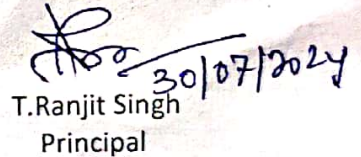 30/07/2024
T.Ranjit Singh
Principal